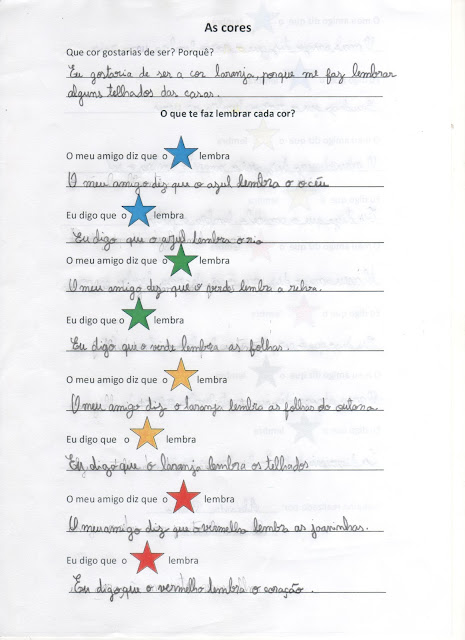 As cores
Que cor gostarias de ser? Porquê?
Eu gostaria de ser a cor laranja, porque me faz lembrar
alguns telhados das casas.
O que te faz lembrar cada cor?
O meu amigo diz que o lembra
O meu amigo diz que o azul lembra o océu
Eu digo que o lembra
Eu digo que o azul lembra o rio
O meu amigo diz que o lembra
O meu amigo diz que o verde lembra a relva.
Eu digo que o lembra
Eu digo que o verde lembra as folhas.
O meu amigo diz que o lembra
O meu amigo diz o laranja lembra as folhas do outono
Eu digo que o lembra
Eu digo que o laranja lembra os telhados
O meu amigo diz que o lembra
O meu amigo diz que o vermelho lembra as joaninhas.
Eu digo que o lembra
Eu digo que o vermelho lembra o coração.